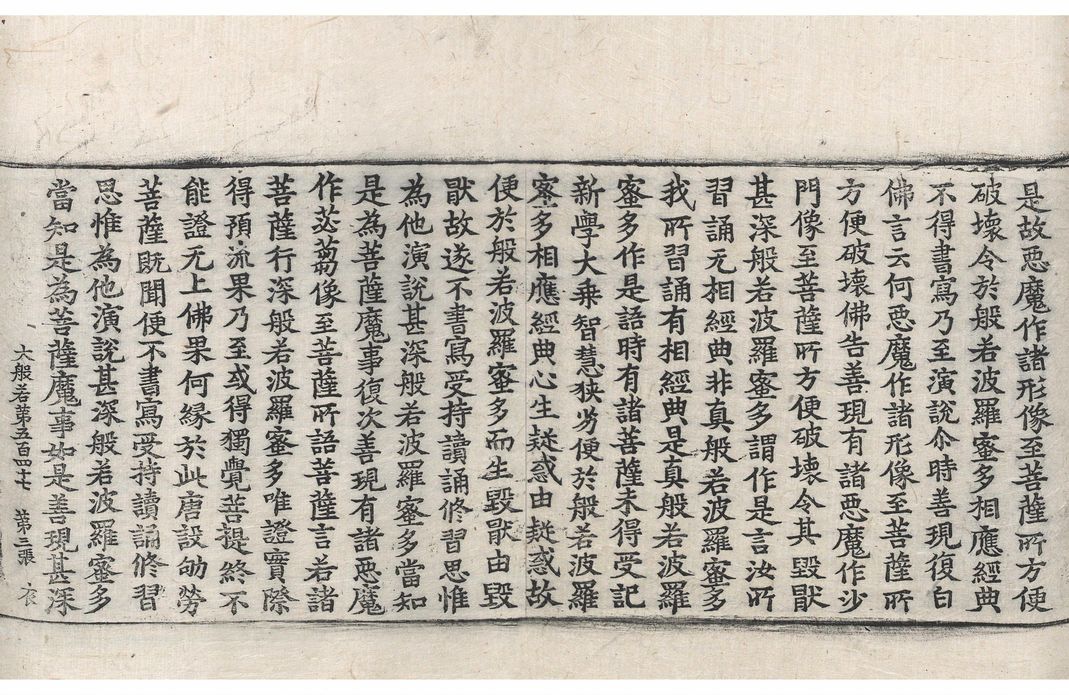 是故惡魔作諸形像至菩薩所方便
破壞令於般若波羅蜜多相應經典
不得書寫乃至演說尒時善現復白
佛言云何惡魔作諸形像至菩薩所
方便破壞佛告善現有諸惡魔作沙
門像至菩薩所方便破壞令其毀猒
甚深般若波羅蜜多謂作是言汝所
習誦无相經典非真般若波羅蜜多
我所習誦有相經典是真般若波羅
蜜多作是語時有諸菩薩未得受記
新學大乘智慧狹劣便於般若波羅
蜜多相應經典心生疑惑由疑惑故
便於般若波羅蜜多而生毀猒由毀
猒故遂不書寫受持讀誦修習思惟
為他演說甚深般若波羅蜜多當知
是為菩薩魔事復次善現有諸惡魔
作苾芻像至菩薩所語菩薩言若諸
菩薩行深般若波羅蜜多唯證實際
得預流果乃至或得獨覺菩提終不
能證无上佛果何緣於此唐設劬勞
菩薩既聞便不書寫受持讀誦修習
思惟為他演說甚深般若波羅蜜多
當知是為菩薩魔事如是善現甚深
大般若第五百四十七 第三張 衣